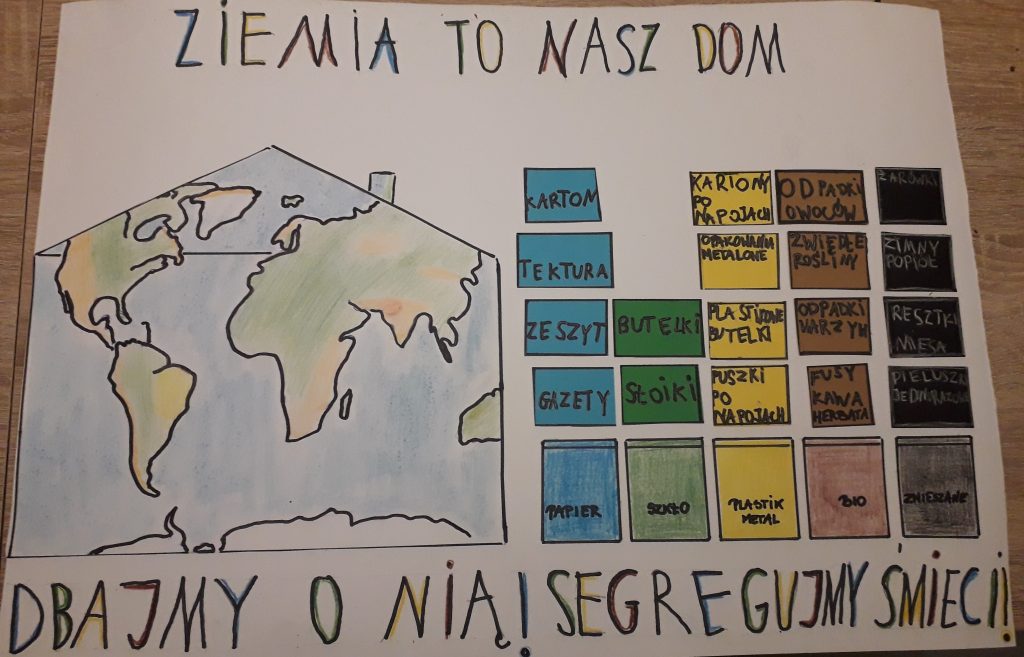 ZIEMIA TO NASZ DOM
KARTON
TEKTURA
ZESZYT
GAZETY
PAPIER
BUTELKI
SŁOIKI
SZKŁO
KARTONY
PO
NAPOJACH
OPAKOWANIA
METALOWE
PLASTIKOWE
BUTELKI
PUSZKI
PO
NAPOJACH
PLASTIK
METAL
ODPADKI
OWOCÓW
ZWIĘDŁE
ROŚLINY
ODPADKI
WARZYW
FUSY
KAWA
HERBATA
BIO
ŻARÓWKI
ZIMNY
POPIÓŁ
RESZTKI
MIĘSA
PIELUSZKI
JEDNORAZOWE
ZMIESZANE
DBAJMY O NIĄ! SEGREGUJMY ŚMIECI!